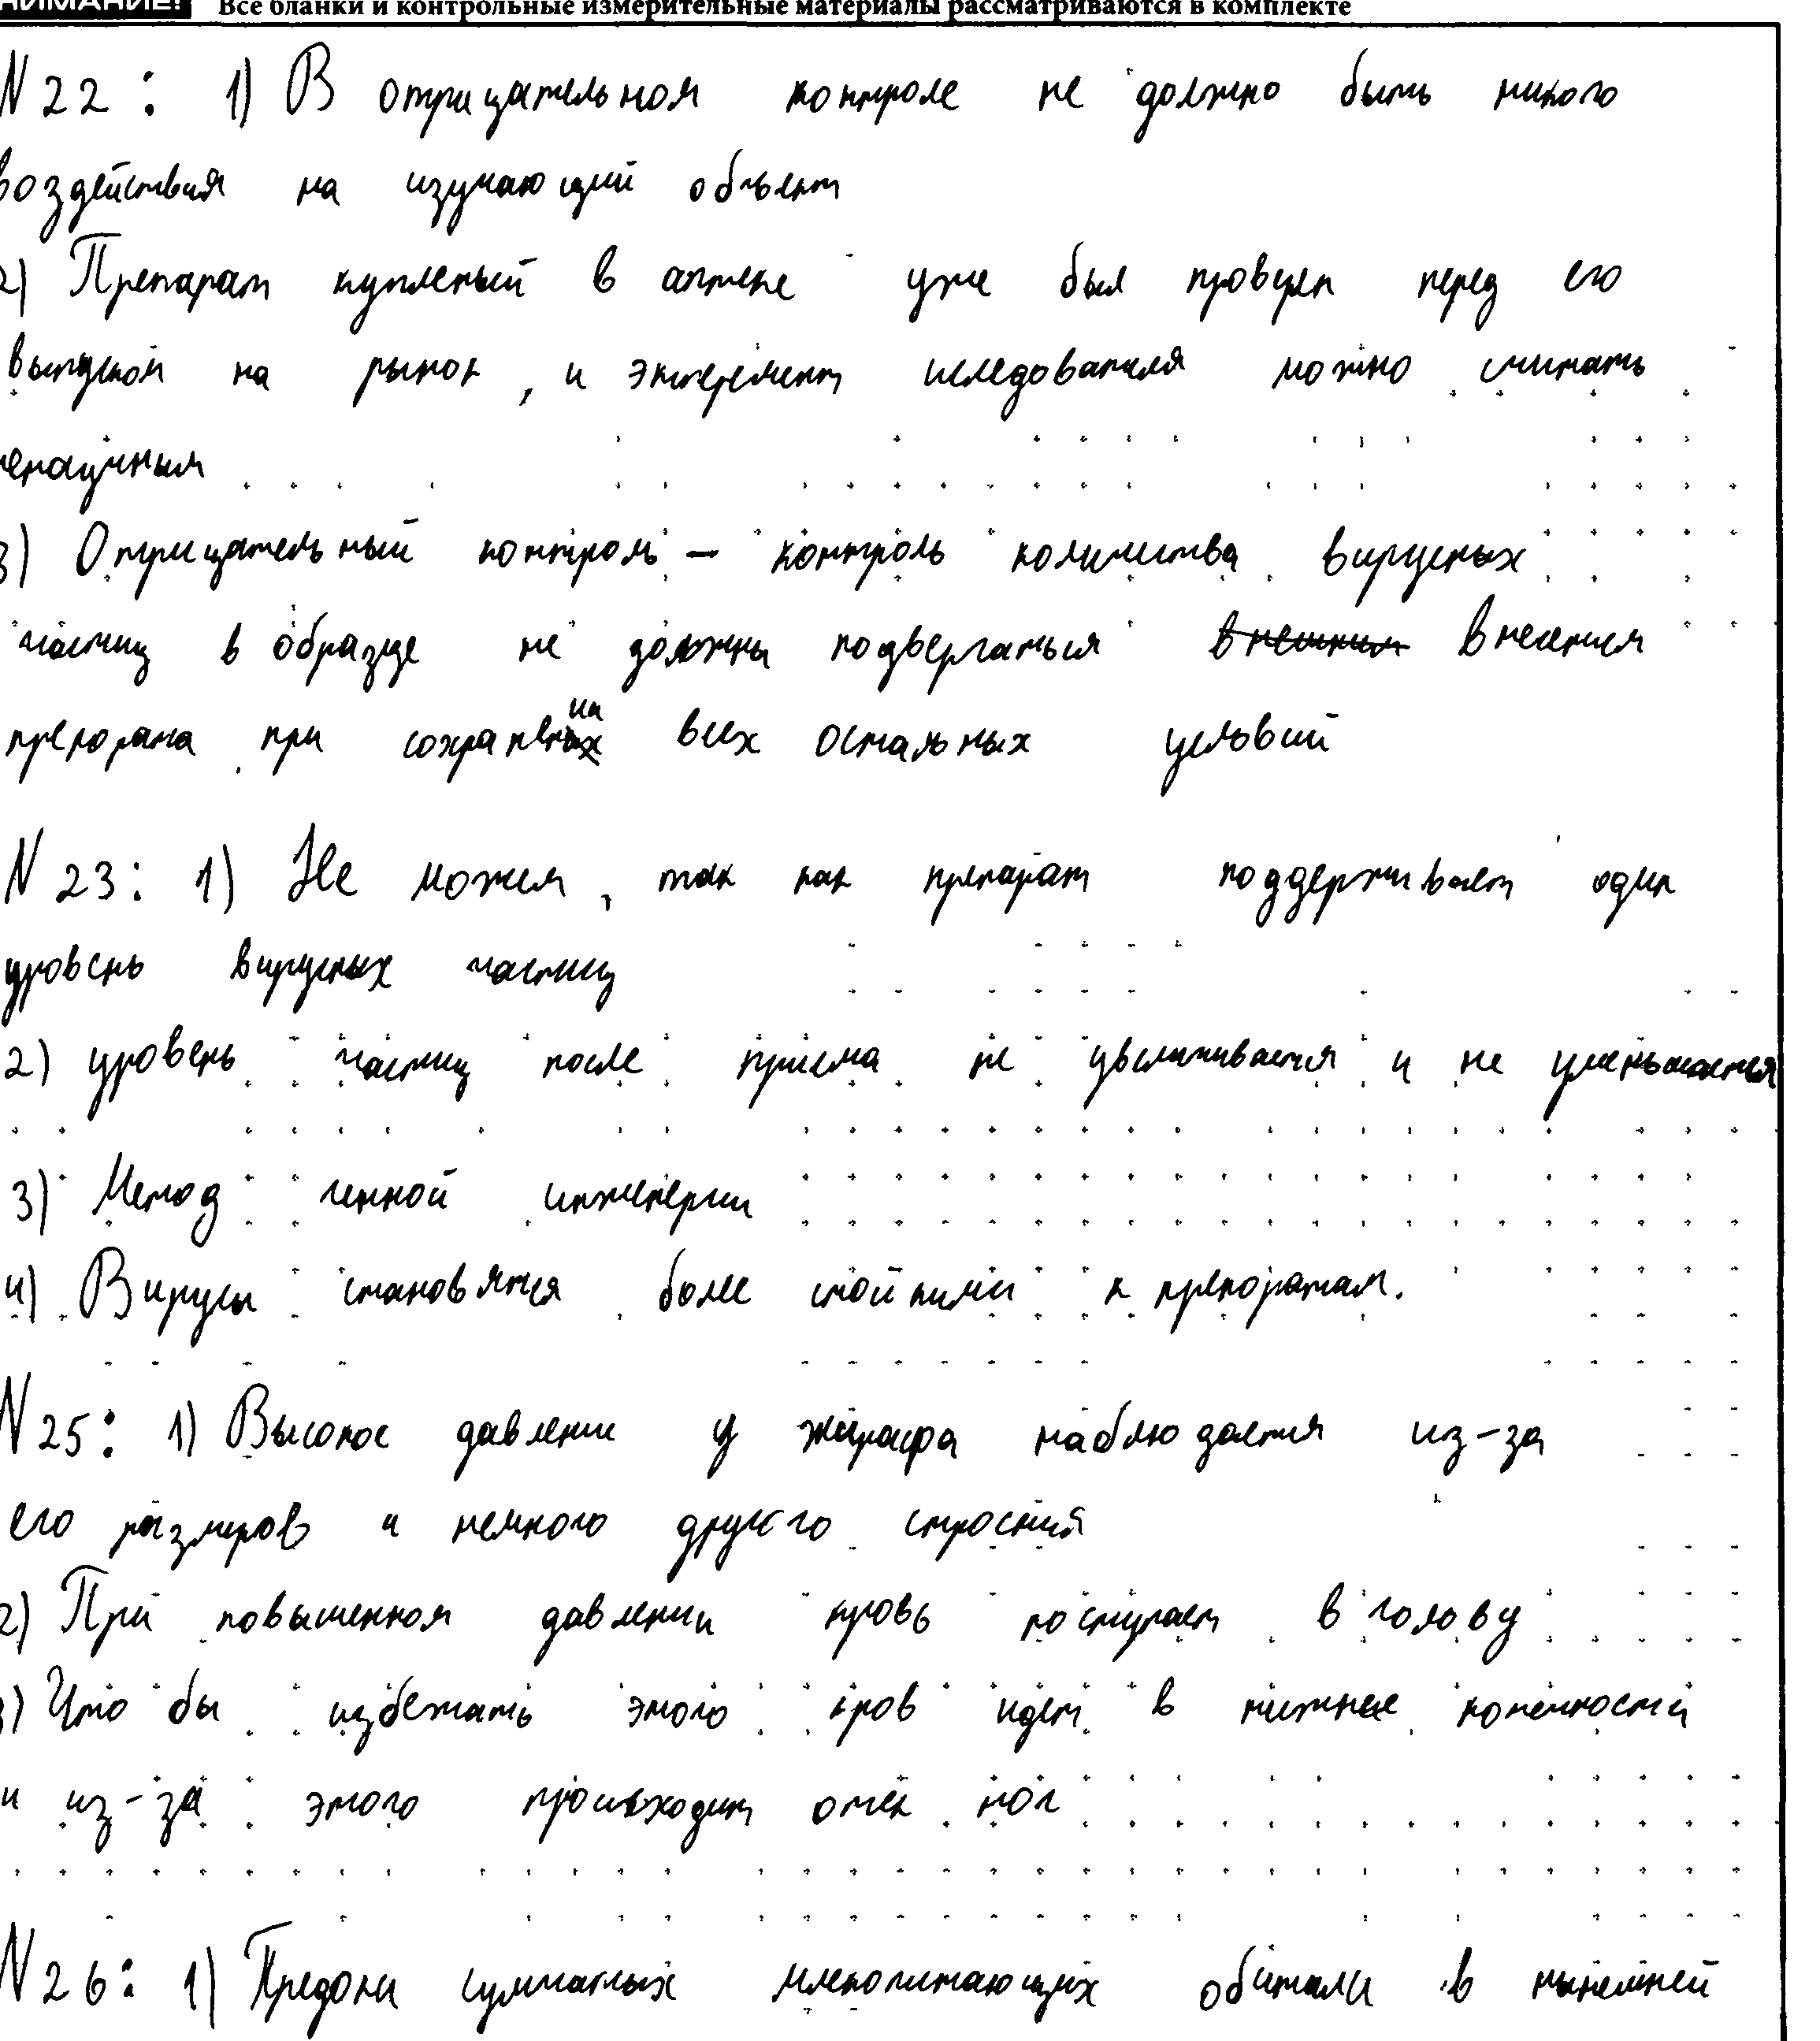 ВНИМАНИЕ! Все бланки и контрольные измерительные материалы рассматриваются в комплекте
N 22: 1) В отрицательном контроле не должно быть никого
воздействия на изучающий объект
2) Препарат купленый в аптеке уже был проверен перед его
выпуском на рынок, и эксперемент иследователя можно считать
ненаучным
3) Отрицательный контроль - контроль количества вирусных
частиц в образце не должны подвергаться внесением
препората при сохранении всех остальных условий
N 23: 1) Не можем, так как препарат поддерживает один
уровень вирусных частиц
2) уровень частиц после приема не увеличивается и не уменьшается
3) Метод генной инженерии
4) Вирусы становятся более стойкими к препоратам.
N 25: 1) Высокое давление у жирафа наблюдается из-за
его размеров и немного другого строения
2) При повышенном давлении кровь поступает в голову
3) Что бы избежать этого кров идет в нижнее конечности
и из-за этого происходит отек ног
N 26: 1) Предки сумчатых млекопитающих обитали в нынешней